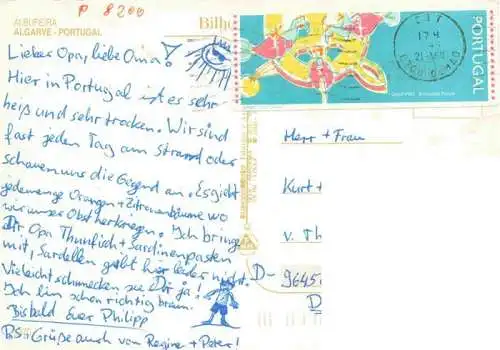 P 8200
ALBUFEIRA
ALGARVE - PORTUGAL
Bilhe
Lieber Opa, liebe Oma!
Hier in Portugal ist es sehr
heiß und sehr trocken. Wir sind
fast jeden Tag am Strand oder
schauen uns die Gegend an. Es gibt
jedemenge Orangen + Zitronenbäume wo
wir unser Obst herkriegen. Ich bringe
Dir Opa Thunfisch + Sardinenpasten
mit, Sardellen gibt hier leider nicht.
Vieleicht schmecken sie Dir ja!
Ich bin schon richtig braun.
Bis bald Euer Philipp
P.S: Grüße auch von Regine + Peter!
PORTUGAL
Herr + Frau
Kurt +
v. Th
D- 9645
D